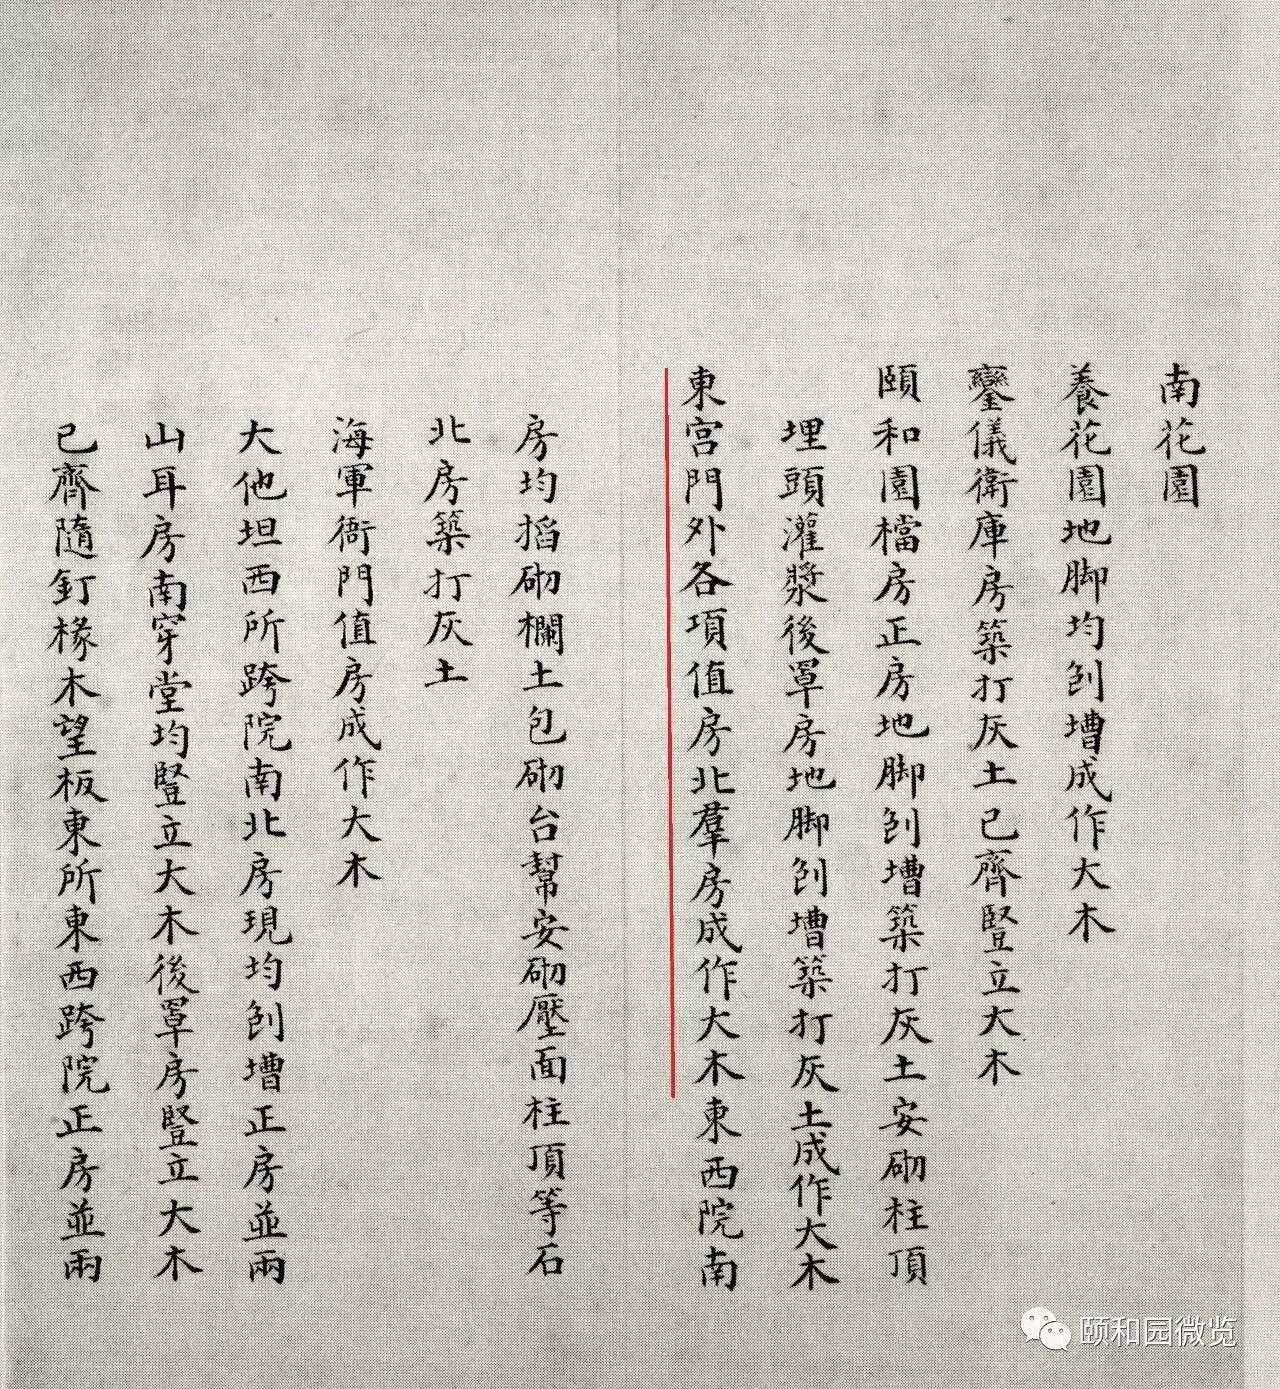 南花園
養花園地脚均刨槽成作大木
鑾儀衛庫房築打灰土已齊豎立大木
頤和園檔房正房地脚刨槽築打灰土安砌柱頂
埋頭灌漿後罩房地脚刨槽築打灰土成作大木
東宫門外各項值房北羣房成作大木東西院南
房均掐砌欄土包砌台幫安砌壓面柱頂等石
北房築打灰土
海軍衙門值房成作大木
大他坦西所跨院南北房現均刨槽正房並兩
山耳房南穿堂均豎立大木後罩房豎立大木
已齊隨釘椽木望板東所東西跨院正房並兩
颐和园微览